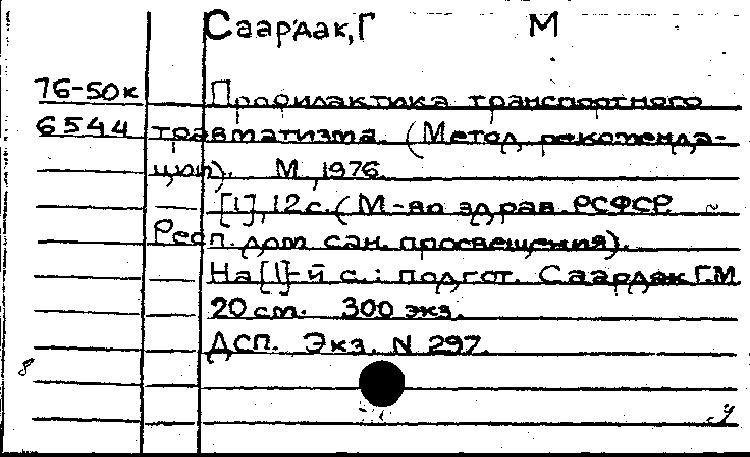 Саардак, Г М
76-50к Профилактика транспортного
6544 травматизма. (Метод. рекоменда-
ции). М., 1976.
[1], 12 с. (М-во здрав. РСФСР.
Респ. дом сан. просвещения).
На [1]-й с.: подгот. Саардак Г.М.
20 см. 300 экз.
ДСП. Экз. N 297.